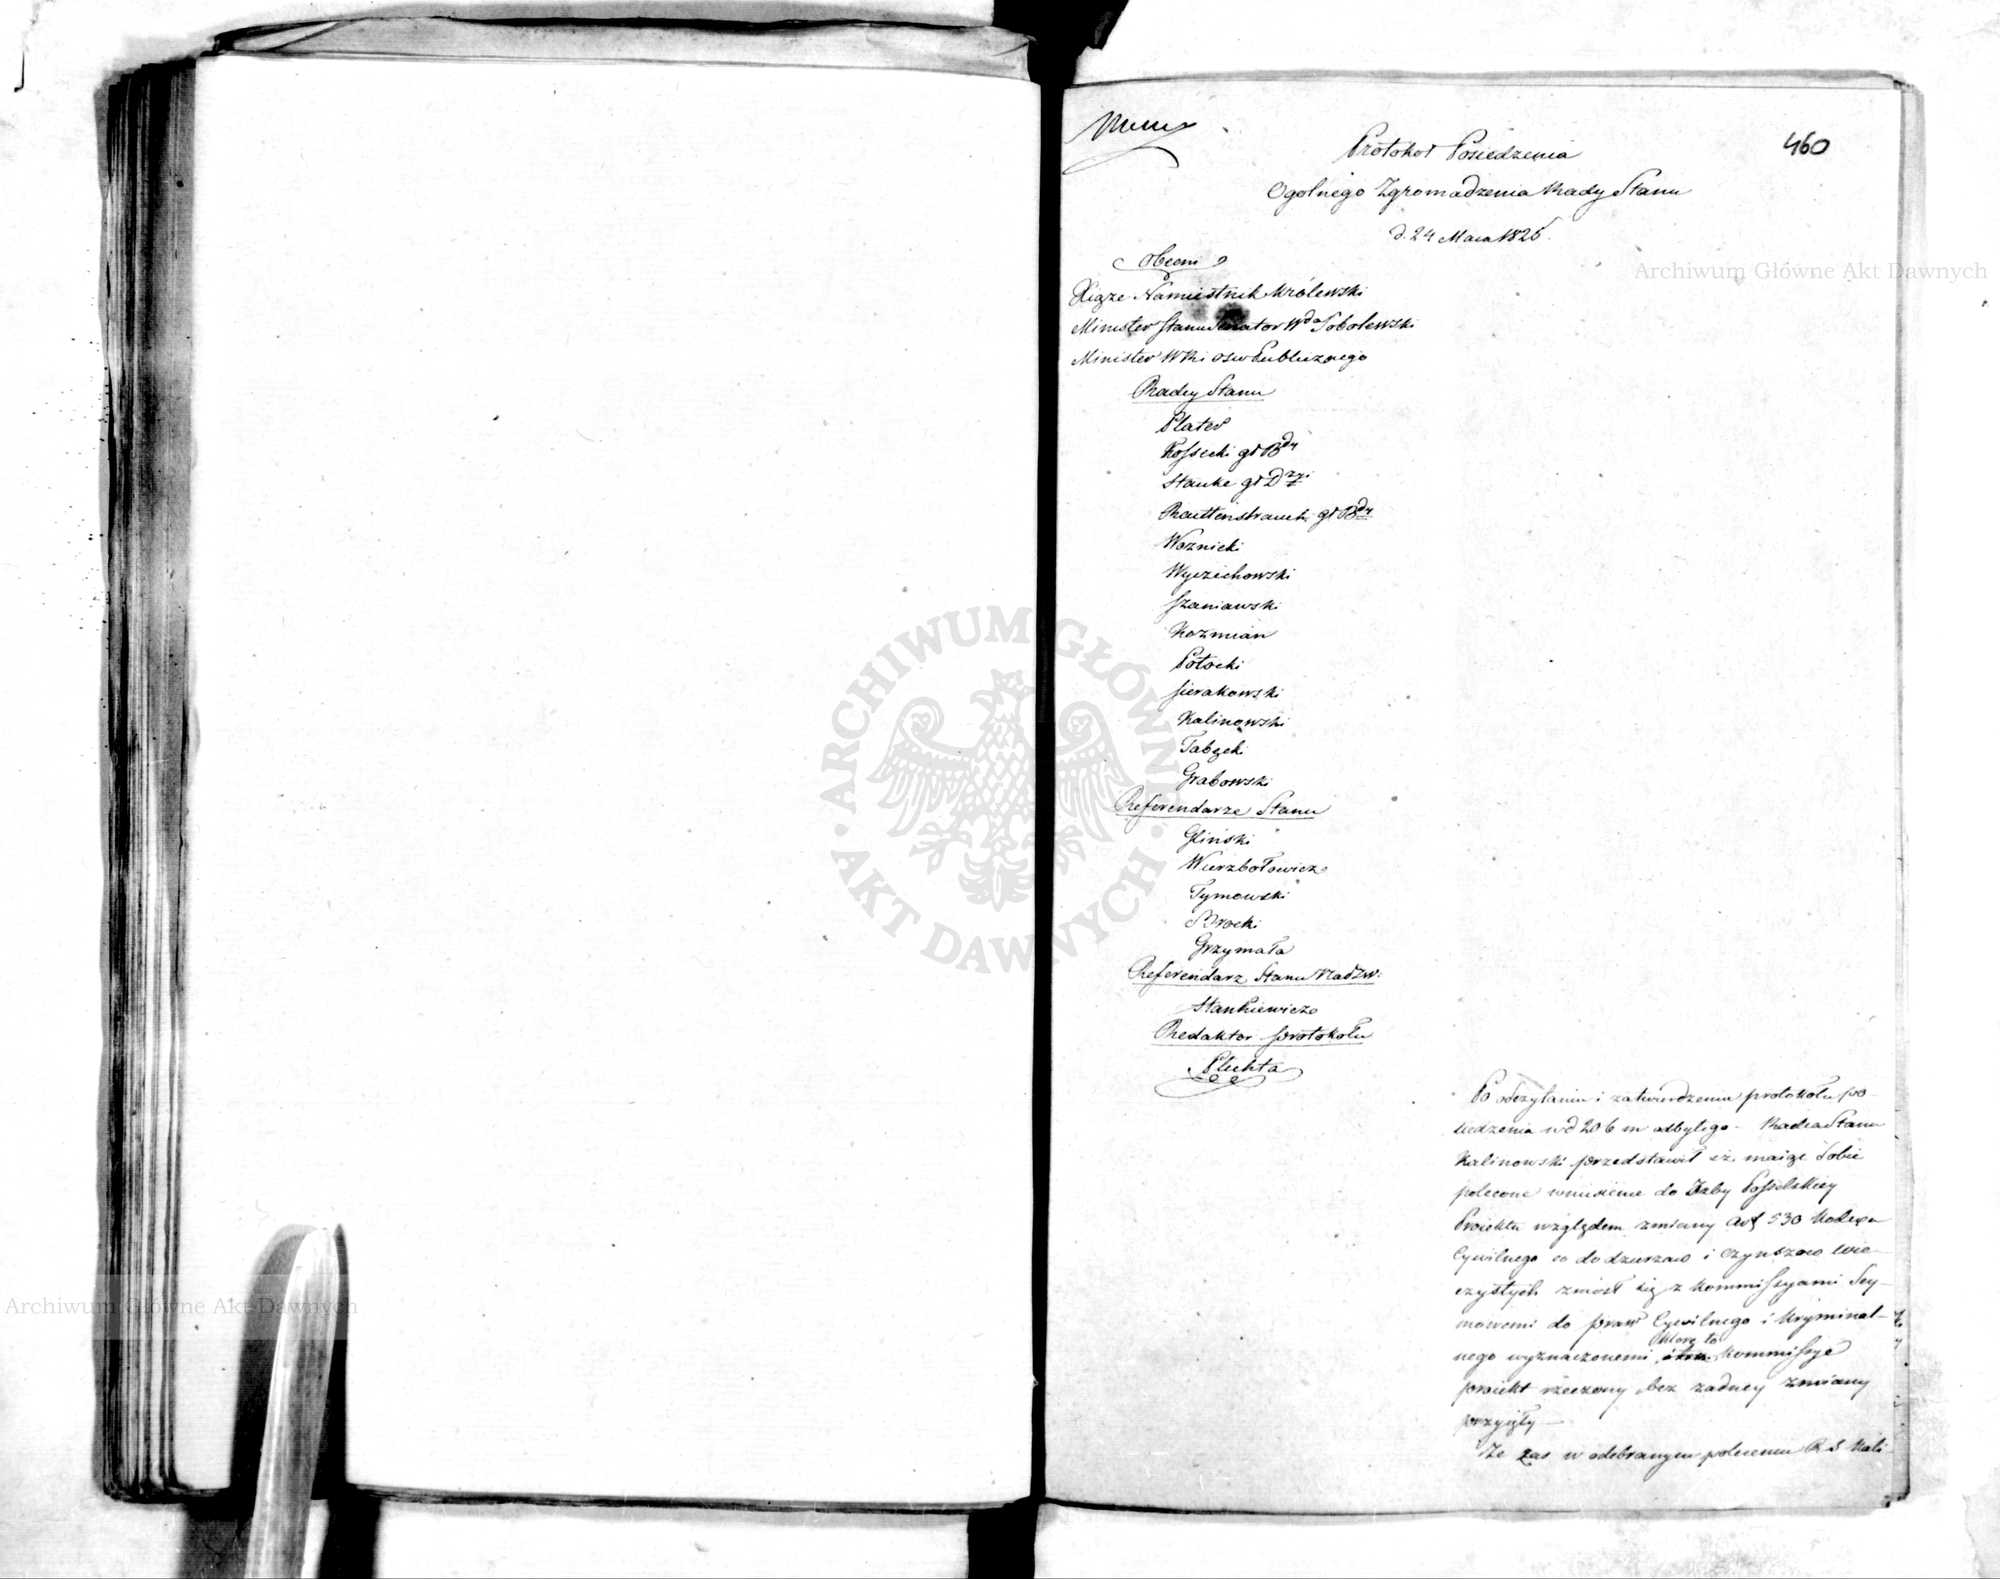 460
Protokoł Posiedzenia
Ogolnego Zgromadzenia Rady Stanu
d. 24 Maia 1825.
Obecni
Xiąże Namiestnik Królewski
Minister Stanu Senator Wda Sobolewski
Minister W Rki Osw Publicznego
Radcy Stanu
Plater
Kossecki gł Bdy
Hauke gł Dzyi
Rauttenstrauch gł Bdy
Woznicki
Wyczechowski
Szaniawski
Kozmian
Potocki
Sierakowski
Kalinowski
Tabęcki
Grabowski
Referendarze Stanu
Gliński
Wierzbołowicz
Tymowski
Brocki
Grzymała
Referendarz Stanu Nadzw:
Stankiewicz
Redaktor protokołu
Pluhta
Po odczytaniu i zatwierdzeniu protokołu po-
siedzenia w d 20 b m odbytego - Radca Stanu
Kalinowski przedstawił iż maiąc sobie
polecone wniesienie do Izby Posselskiey
Proiektu względem zmiany Art 530 Kodexu
Cywilnego co do dzierzaw i czynszow wie-
czystych zniosł się z Kommissyami Sey-
mowemi do praw Cywilnego i Kryminal-
nego wyznaczonemi, ktore to Kommissye
proiekt rzeczony bez zadney zmiany
przyięły —
Ze zas w odebranym poleceniu R S Kali-
Archiwum Główne Akt Dawnych
Archiwum Główne Akt Dawnych
ARCHIWUM GŁÓWNE AKT DAWNYCH